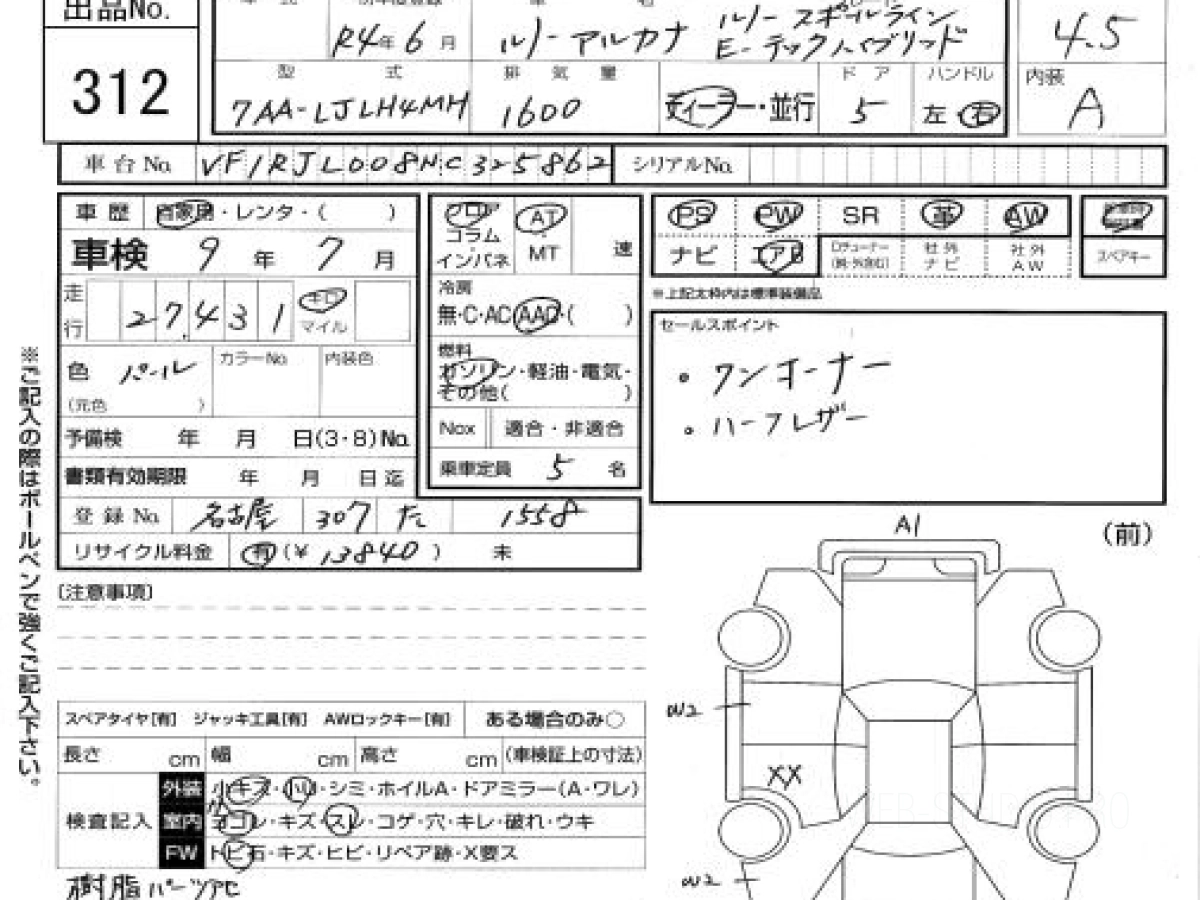 出品No.
312
ルノー スポールライン
R4年 6月 ルノー アルカナ E-テックハイブリッド
4.5
型 式 排 気 量 ドア ハンドル 内装
7AA-LJLH4MH 1600 ディーラー・並行 5 左 右 A
車台No. VF1RJL008NC325862 シリアルNo.
車歴 自家用・レンタ・( )
車検 9年 7月
走行 27,431 キロ マイル
色 パール カラーNo. 内装色
(元色 )
予備検 年 月 日(3・8)No.
書類有効期限 年 月 日迄
登録No. 名古屋 307 た 1558
リサイクル料金 有(¥ 13840 ) 未
フロア AT
コラム・インパネ MT 速
冷房
無・C・AC・AAC・( )
燃料
ガソリン・軽油・電気・
その他( )
Nox 適合・非適合
乗車定員 5 名
PS PW SR 革 AW
ナビ エアB ロチューナー 社外ナビ 社外AW スペアキー
※上記太枠内は標準装備品
セールスポイント
・ワンオーナー
・ハーフレザー
※ご記入の際はボールペンで強くご記入下さい。
(注意事項)
スペアタイヤ[有] ジャッキ工具[有] AWロックキー[有] ある場合のみ○
長さ cm 幅 cm 高さ cm (車検証上の寸法)
検査記入
外装 小キズ・小U・シミ・ホイルA・ドアミラー(A・ワレ)
室内 ヨゴレ・キズ・スレ・コゲ・穴・キレ・破れ・ウキ
FW トビ石・キズ・ヒビ・リペア跡・X要ス
樹脂パーツ
A1
(前)
W2
XX
W2